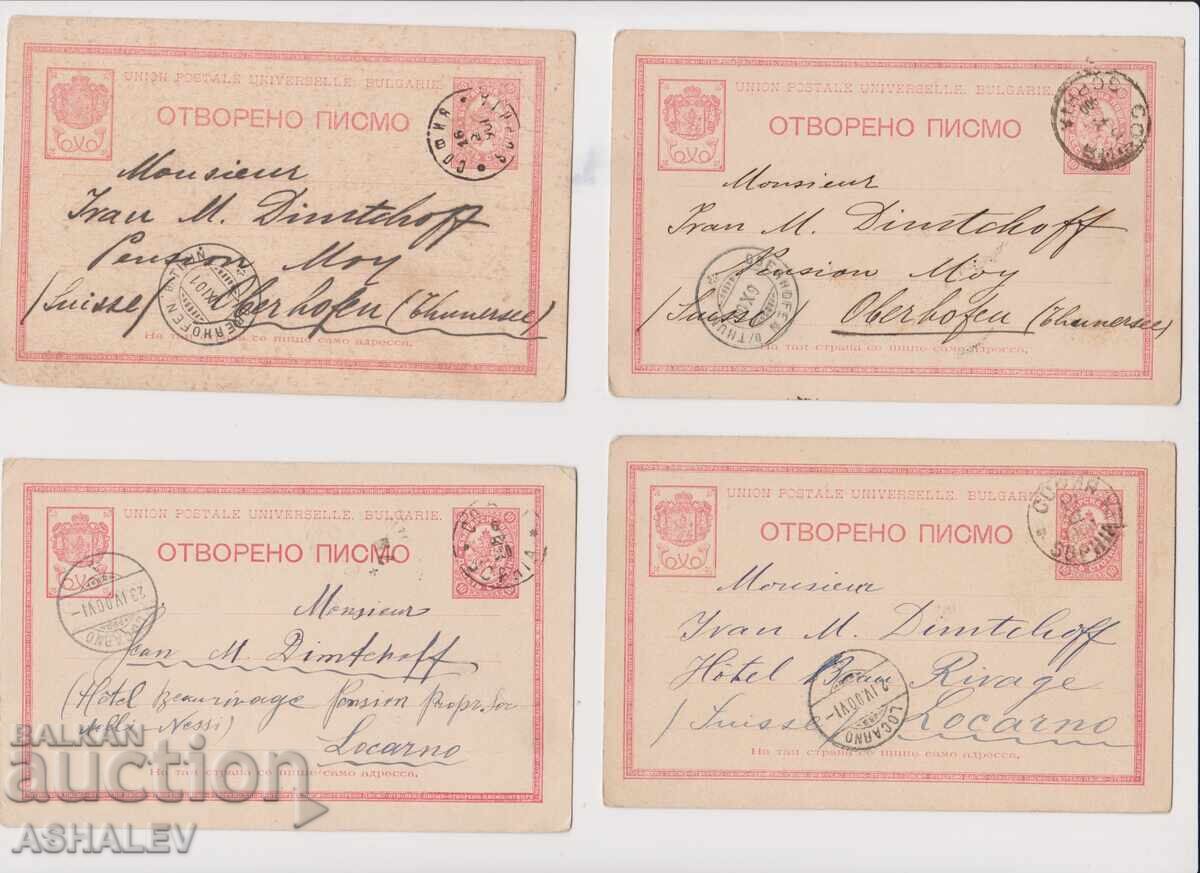 UNION POSTALE UNIVERSELLE. BULGARIE.
ОТВОРЕНО ПИСМО
СОФИЯ
Monsieur
Ivan M. Dimtchoff
Pension Moy
(Suisse) Oberhofen (Thunersee)
OBERHOFEN B/THUN
На тая страна се пише само адресса.
UNION POSTALE UNIVERSELLE. BULGARIE.
ОТВОРЕНО ПИСМО
Monsieur
Ivan M. Dimtchoff
Pension Moy
(Suisse) Oberhofen (Thunersee)
OBERHOFEN B/THUN
На тая страна се пише само адресса.
UNION POSTALE UNIVERSELLE. BULGARIE.
ОТВОРЕНО ПИСМО
Monsieur
Jean M. Dimtchoff
(Hôtel Beaurivage Pension
Locarno
LOCARNO
23.IV.00.VI-
На тая страна се пише само адресса.
UNION POSTALE UNIVERSELLE. BULGARIE.
ОТВОРЕНО ПИСМО
SOPHIA
Monsieur
Ivan M. Dimtchoff
Hôtel Beau Rivage
(Suisse) Locarno
LOCARNO
2.IV.00.VI-
На тая страна се пише само адресса.
BALKAN
auction
ASHALEV